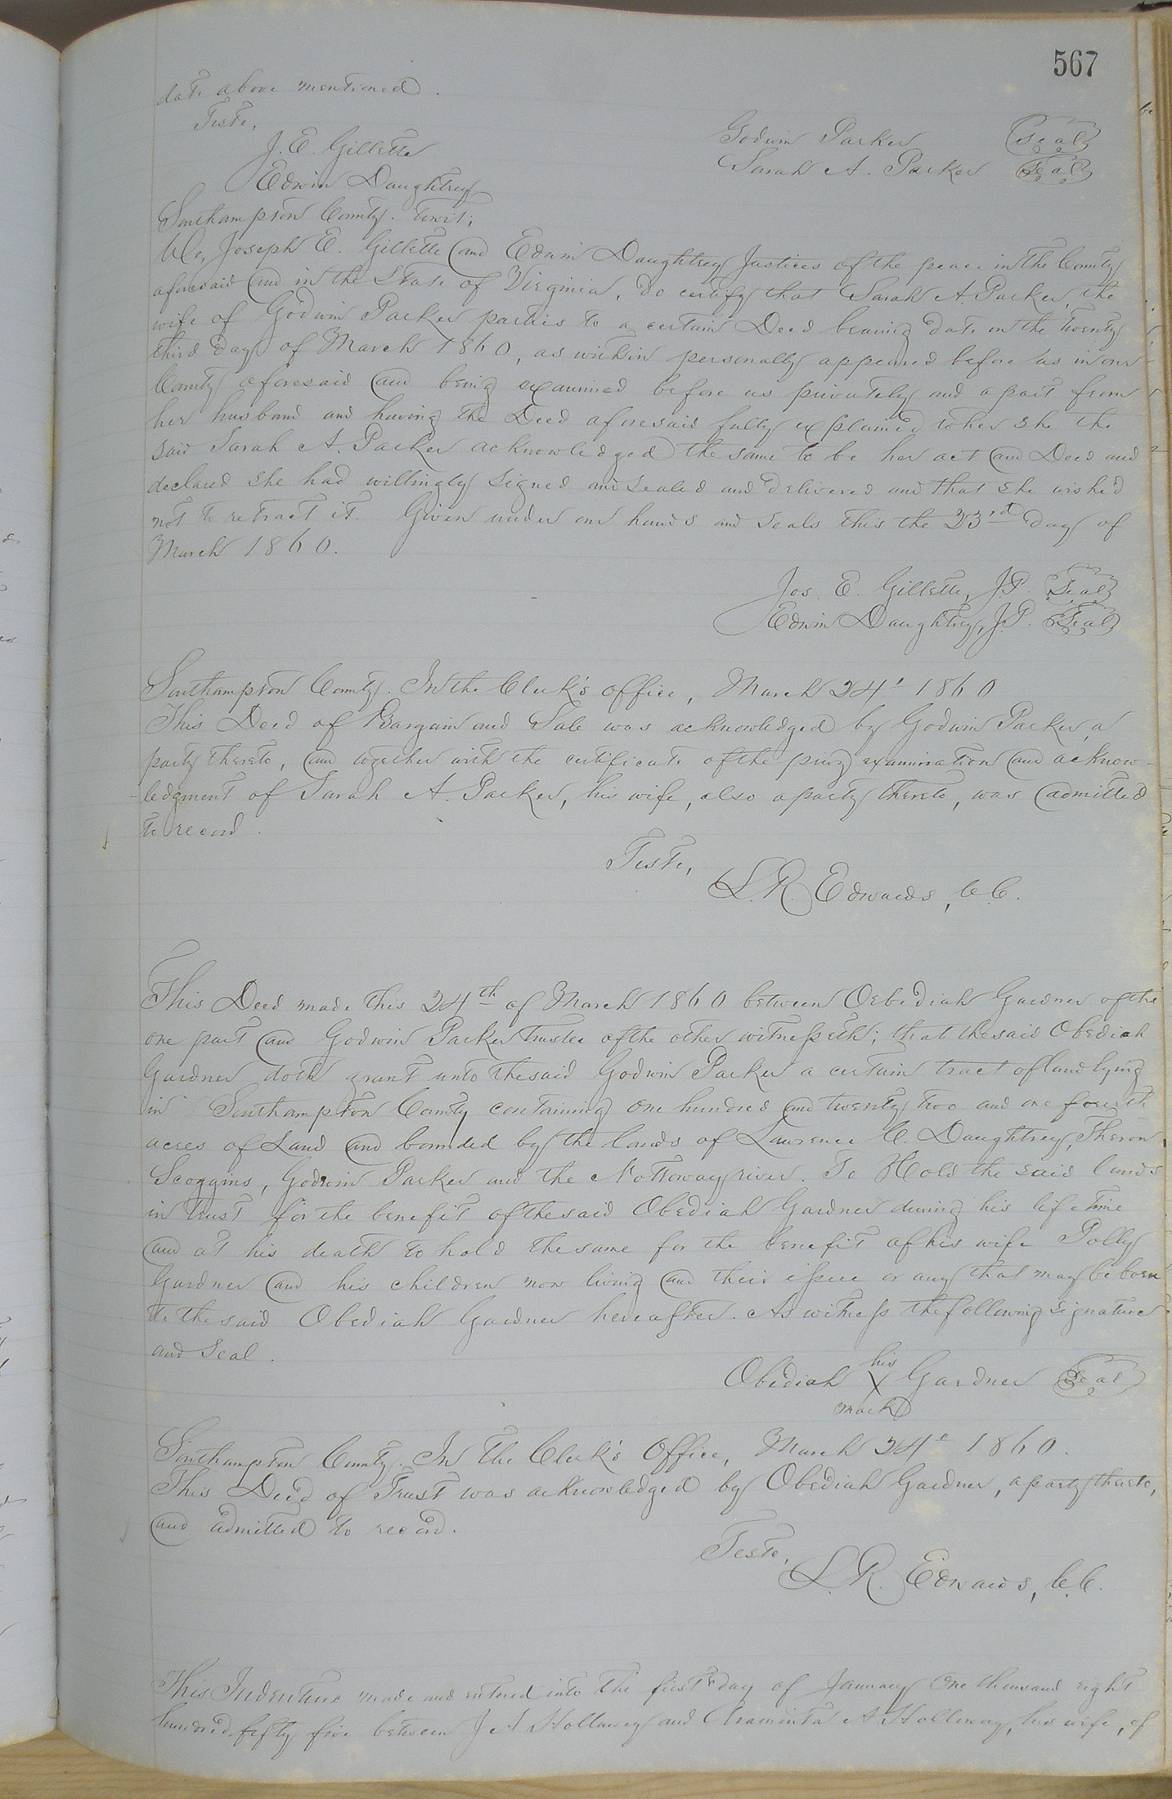 567
date above mentioned.
Teste,
J. E. Gillette
Edwin Daughtrey
Godwin Parker Seal
Sarah A. Parker Seal
Southampton County. towit;
We, Joseph E. Gillette and Edwin Daughtrey Justices of the peace in the County
aforesaid and in the State of Virginia, do certify that Sarah A. Parker, the
wife of Godwin Parker parties to a certain Deed bearing date on the twenty
third day of March 1860, as within personally appeared before us in our
County aforesaid and being examined before us privately and apart from
her husband and having the Deed aforesaid fully explained to her she the
said Sarah A. Parker acknowledged the same to be her act and Deed and
declared she had willingly signed and sealed and delivered and that she wished
not to retract it. Given under our hands and seals this the 23rd day of
March 1860.
Jos. E. Gillette, J.P. Seal
Edwin Daughtrey, J.P. Seal
Southampton County. In the Clerk's office, March 24' 1860
This Deed of Bargain and Sale was acknowledged by Godwin Parker, a
party thereto, and together with the certificate of the privy examination and acknow-
ledgment of Sarah A. Parker, his wife, also a party thereto, was admitted
to record.
Teste,
L. R. Edwards, C.C.
This Deed made this 24th of March 1860 between Obediah Gardner of the
one part and Godwin Parker trustee of the other witnesseth; that the said Obediah
Gardner doth grant unto the said Godwin Parker a certain tract of land lying
in Southampton County containing one hundred and twenty two and one fourth
acres of Land and bounded by the lands of Lawrence C. Daughtrey, Theron
Scoggins, Godwin Parker and the Nottoway river. To Hold the said lands
in trust for the benefit of the said Obediah Gardner during his life time
and at his death to hold the same for the benefit of his wife Polly
Gardner and his children now living and their issue or any that may be born
to the said Obediah Gardner hereafter. As witness the following signature
and Seal.
Obediah his X mark Gardner Seal
Southampton County. In The Clerk's Office, March 24' 1860.
This Deed of Trust was acknowledged by Obediah Gardner, a party thereto,
and admitted to record.
Teste,
L. R. Edwards, C.C.
This Indenture made and entered into the first day of January One thousand eight
hundred fifty five between J A Holloway and Araminta A Holloway, his wife, of